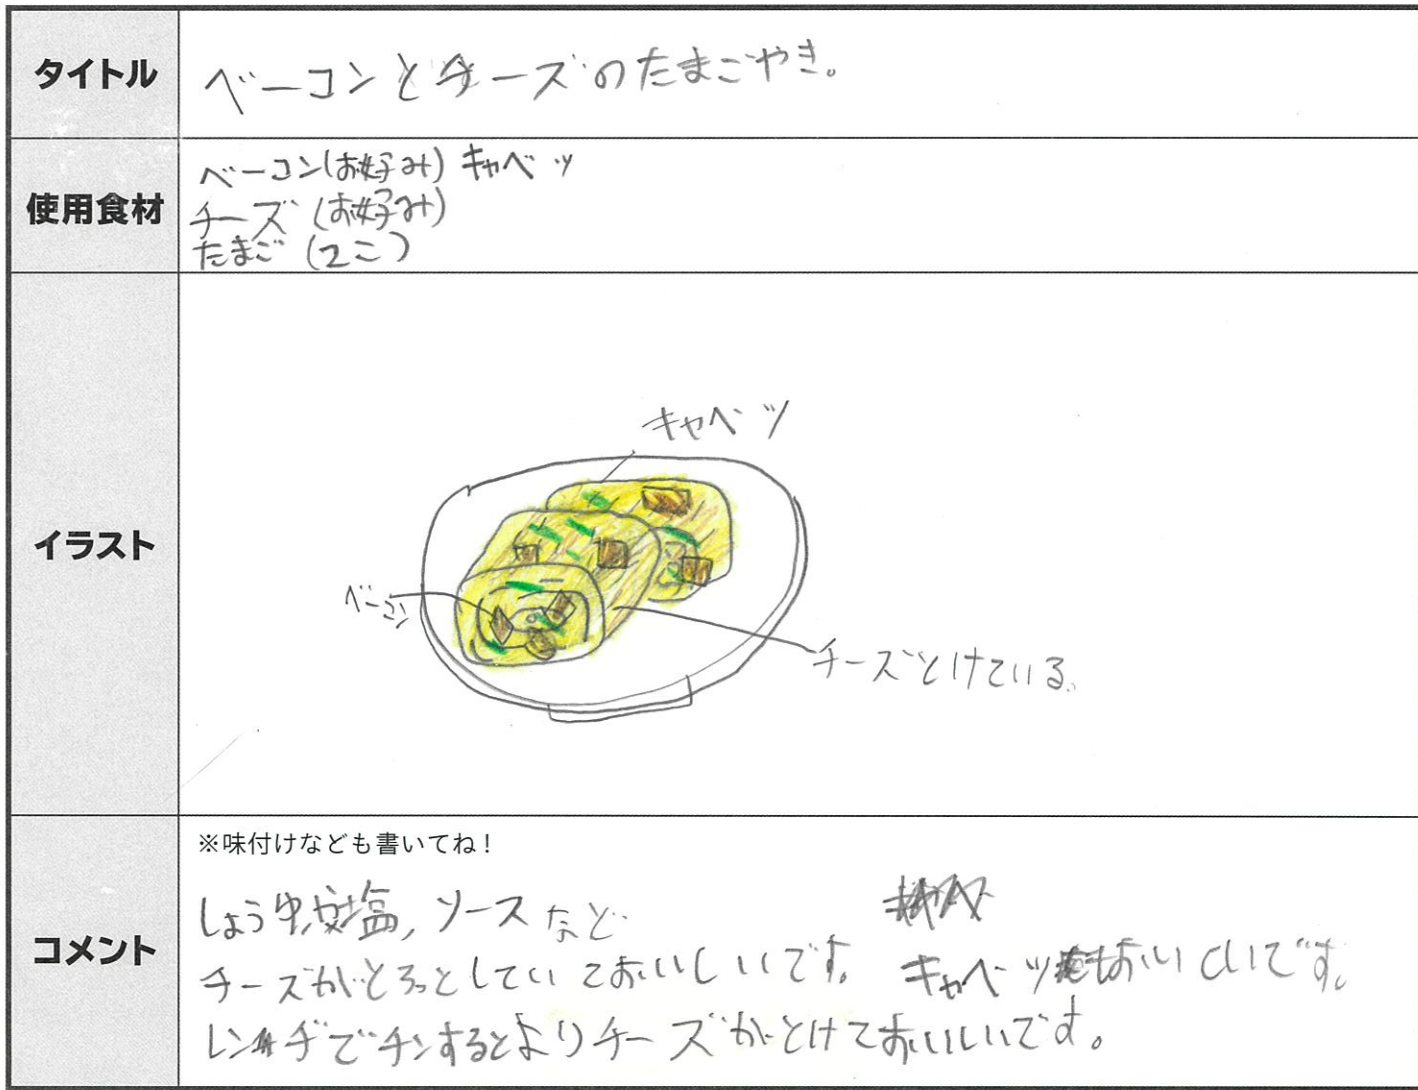 タイトル
ベーコンとチーズのたまごやき。
使用食材
ベーコン(お好み) キャベツ
チーズ (お好み)
たまご (2こ)
イラスト
キャベツ
ベーコン
チーズとけている。
コメント
※味付けなども書いてね！
しょうゆ,塩,ソースなど
チーズがとろっとしていておいしいです。 キャベツもおいしいです。
レンヂでチンするとよりチーズがとけておいしいです。